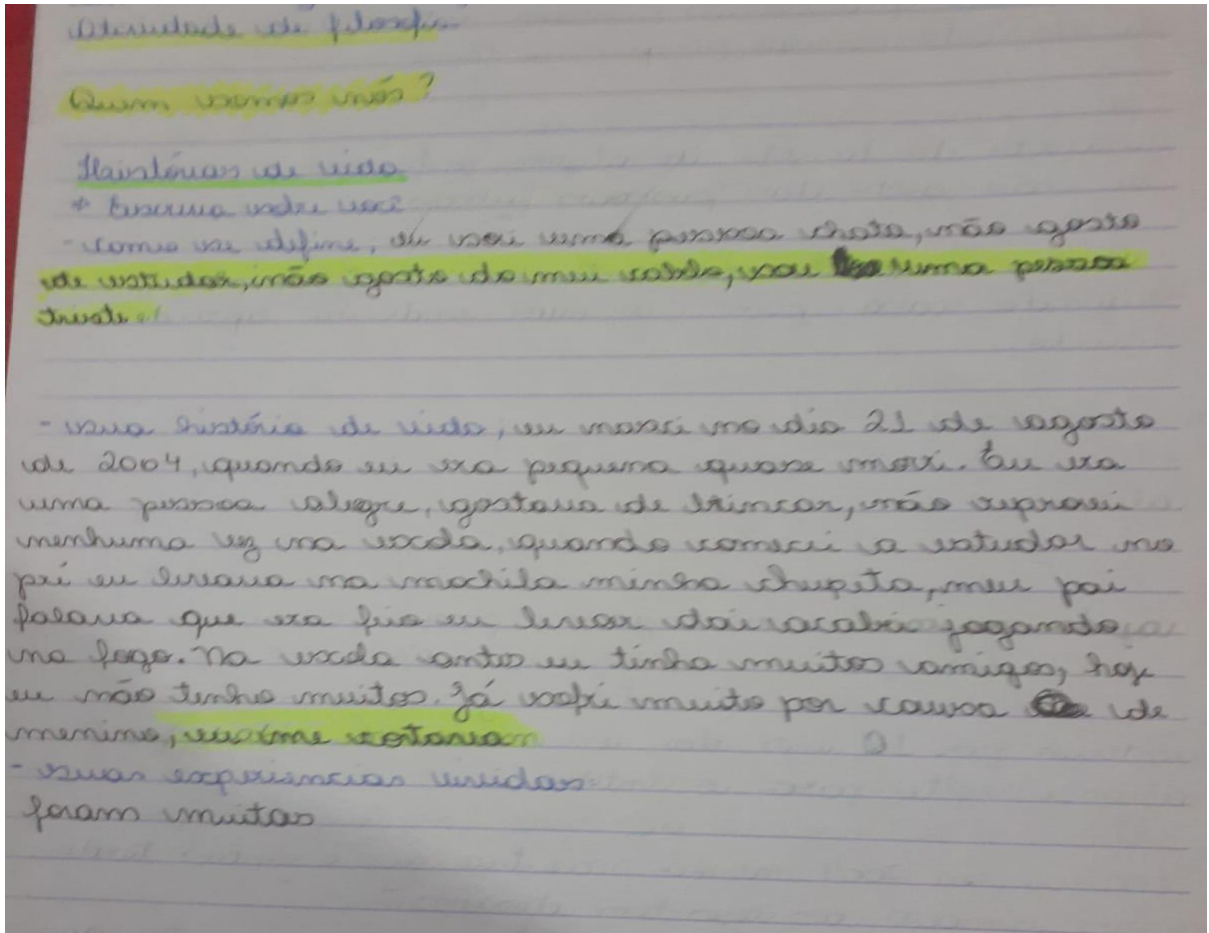 Atividade de filosofia
Quem somos nós?
Histórias de vida
* Escreva sobre você
- como se define, eu sou uma pessoa chata, não gosto
de estudar, não gosto do meu cabelo, sou uma pessoa
triste.
- sua história de vida, eu nasci no dia 21 de agosto
de 2004, quando eu era pequena quase morri. Eu era
uma pessoa alegre, gostava de brincar, não reprovei
nenhuma vez na escola, quando comecei a estudar no
pré eu levava na mochila minha chupeta, meu pai
falava que era feio eu levar daí acabei jogando
no fogo. Na escola antes eu tinha muitos amigos, hoje
eu não tenho muitos. Já sofri muito por causa de
menino,
- suas experiencias vividas
foram muitas